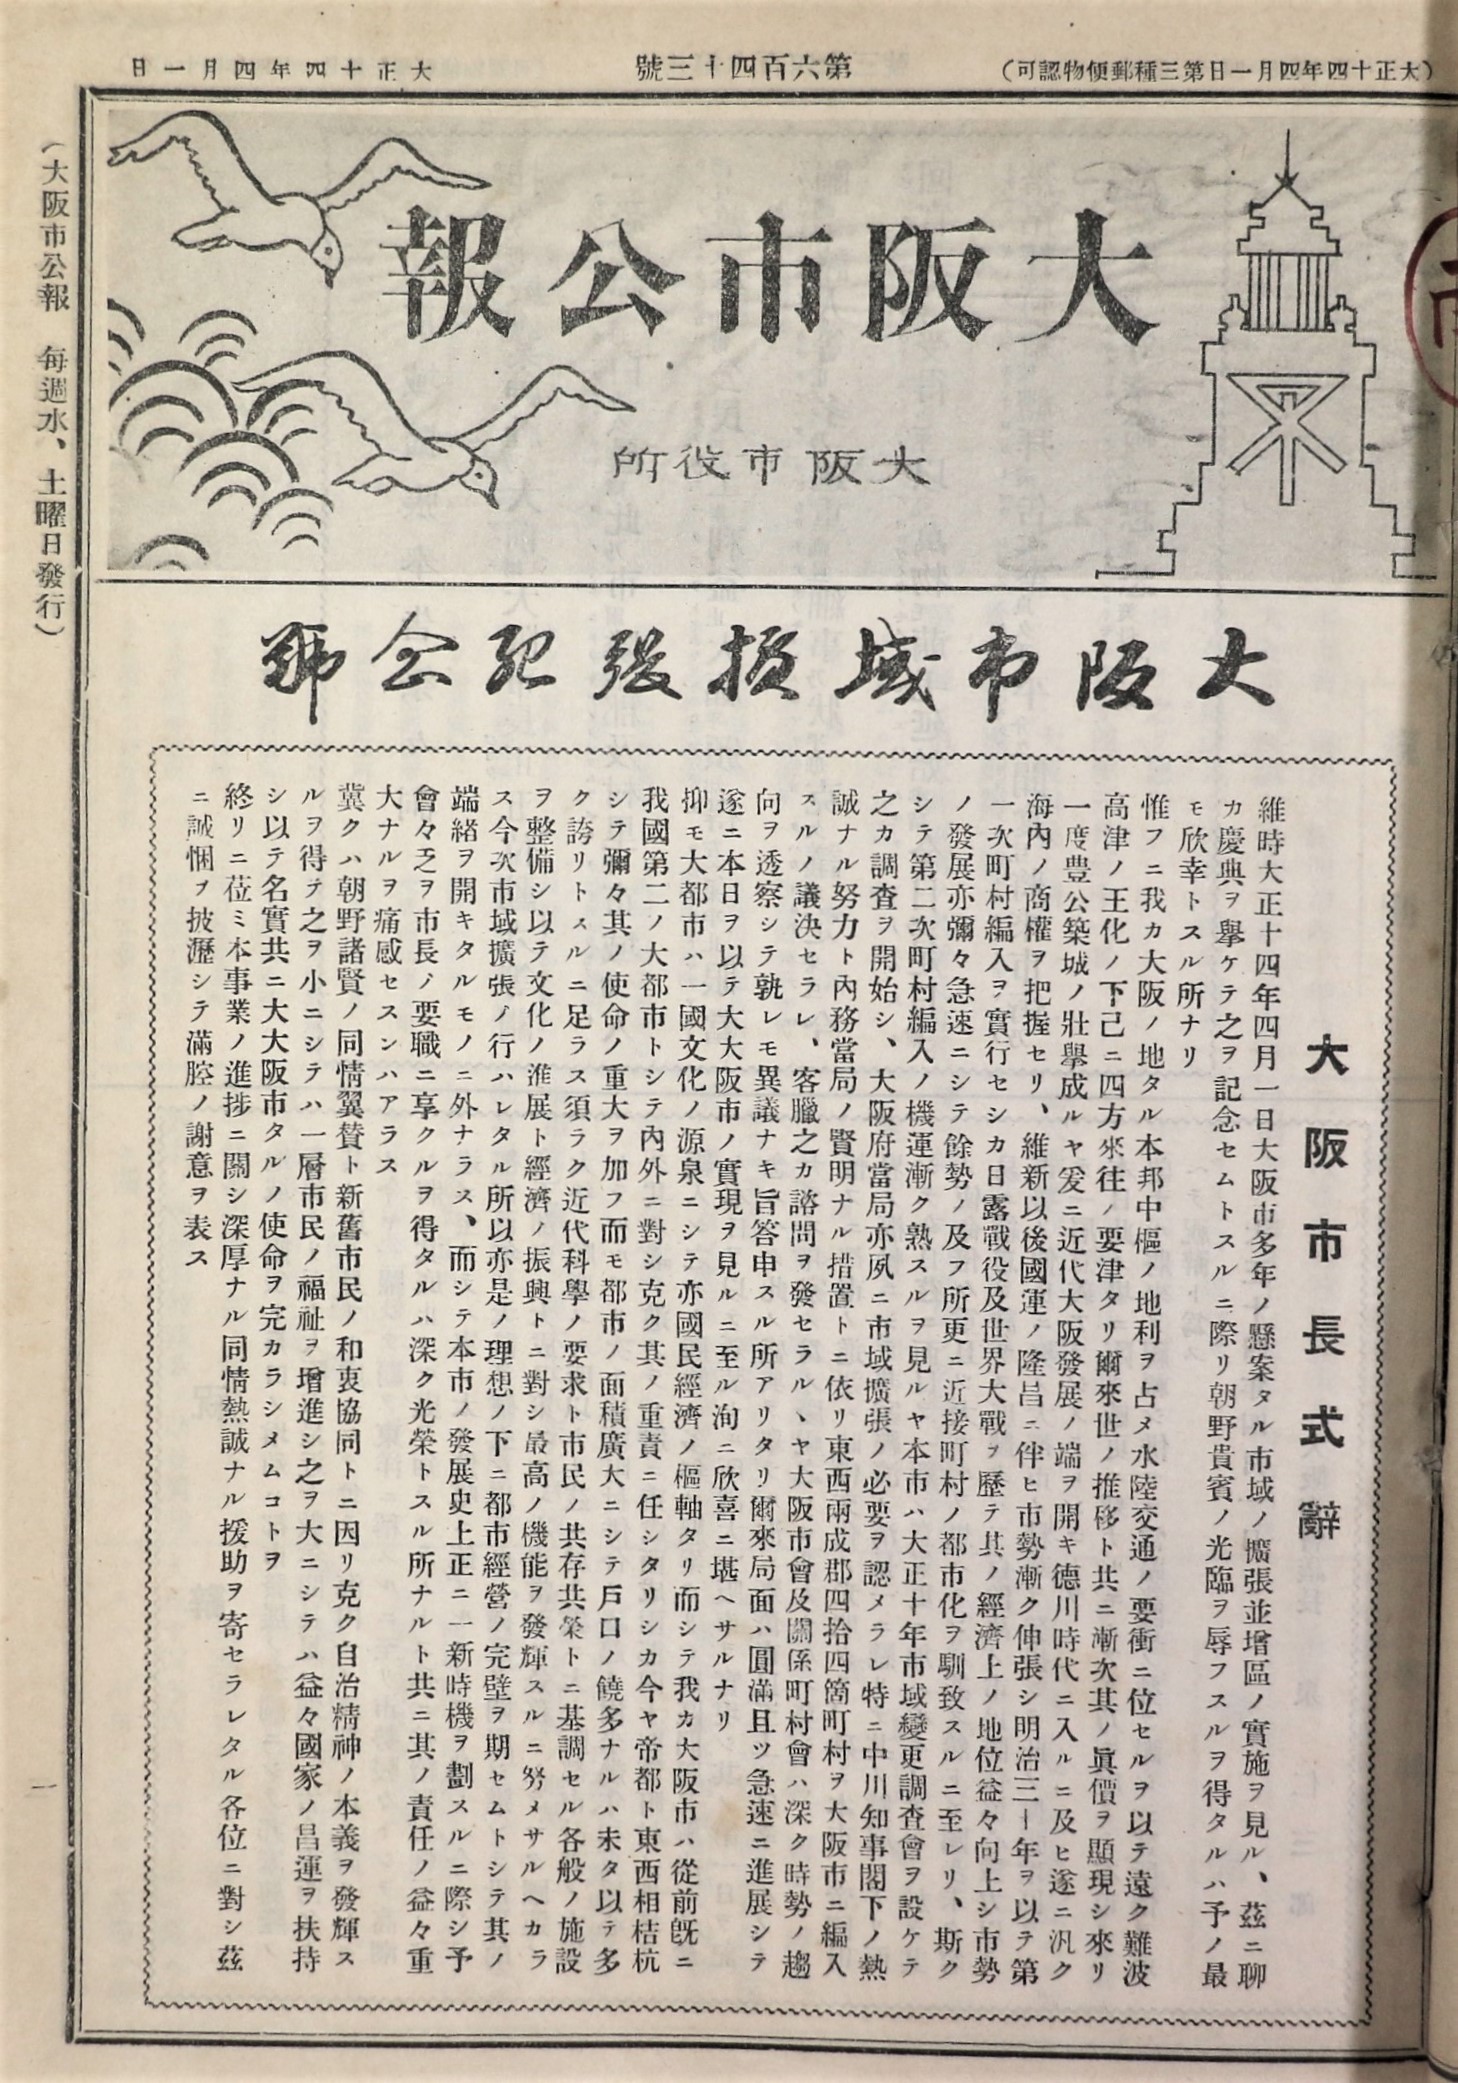 (大正十四年四月一日第三種郵便物認可)
第六百四十三號
大正十四年四月一日
大阪市公報
大阪市役所
(大阪市公報 毎週水、土曜日發行)
大阪市域擴張記念號
大阪市長式辭
維時大正十四年四月一日大阪市多年ノ懸案タル市域ノ擴張並增區ノ實施ヲ見ル、茲ニ聊
カ慶典ヲ擧ケテ之ヲ記念セムトスルニ際リ朝野貴賓ノ光臨ヲ辱フスルヲ得タルハ予ノ最
モ欣幸トスル所ナリ
惟フニ我カ大阪ノ地タル本邦中樞ノ地利ヲ占メ水陸交通ノ要衝ニ位セルヲ以テ遠ク難波
高津ノ王化ノ下己ニ四方來往ノ要津タリ爾來世ノ推移ト共ニ漸次其ノ眞價ヲ顯現シ來リ
一度豊公築城ノ壯擧成ルヤ爰ニ近代大阪發展ノ端ヲ開キ德川時代ニ入ルニ及ヒ遂ニ汎ク
海內ノ商權ヲ把握セリ、維新以後國運ノ隆昌ニ伴ヒ市勢漸ク伸張シ明治三十年ヲ以テ第
一次町村編入ヲ實行セシカ日露戰役及世界大戰ヲ歷テ其ノ經濟上ノ地位益々向上シ市勢
ノ發展亦彌々急速ニシテ餘勢ノ及フ所更ニ近接町村ノ都市化ヲ馴致スルニ至レリ、斯ク
シテ第二次町村編入ノ機運漸ク熟スルヲ見ルヤ本市ハ大正十年市域變更調查會ヲ設ケテ
之カ調査ヲ開始シ、大阪府當局亦夙ニ市域擴張ノ必要ヲ認メラレ特ニ中川知事閣下ノ熱
誠ナル努力ト內務當局ノ賢明ナル措置トニ依リ東西兩成郡四拾四箇町村ヲ大阪市ニ編入
スルノ議決セラレ、客臘之カ諮問ヲ發セラルヽヤ大阪市會及關係町村會ハ深ク時勢ノ趨
向ヲ透察シテ孰レモ異議ナキ旨答申スル所アリタリ爾來局面ハ圓滿且ツ急速ニ進展シテ
遂ニ本日ヲ以テ大大阪市ノ實現ヲ見ルニ至ル洵ニ欣喜ニ堪ヘサルナリ
抑モ大都市ハ一國文化ノ源泉ニシテ亦國民經濟ノ樞軸タリ而シテ我カ大阪市ハ從前旣ニ
我國第二ノ大都市トシテ內外ニ對シ克ク其ノ重責ニ任シタリシカ今ヤ帝都ト東西相拮杭
シテ彌々其ノ使命ノ重大ヲ加フ而モ都市ノ面積廣大ニシテ戶口ノ饒多ナルハ未タ以テ多
ク誇リトスルニ足ラス須ラク近代科學ノ要求ト市民ノ共存共榮トニ基調セル各般ノ施設
ヲ整備シ以テ文化ノ進展ト經濟ノ振興トニ對シ最高ノ機能ヲ發輝スルニ努メサルヘカラ
ス今次市域擴張ノ行ハレタル所以亦是ノ理想ノ下ニ都市經營ノ完璧ヲ期セムトシテ其ノ
端緖ヲ開キタルモノニ外ナラス、而シテ本市ノ發展史上正ニ一新時機ヲ劃スルニ際シ予
會々乏ヲ市長ノ要職ニ享クルヲ得タルハ深ク光榮トスル所ナルト共ニ其ノ責任ノ益々重
大ナルヲ痛感セスンハアラス
冀クハ朝野諸賢ノ同情翼贊ト新舊市民ノ和衷協同トニ因リ克ク自治精神ノ本義ヲ發輝ス
ルヲ得テ之ヲ小ニシテハ一層市民ノ福祉ヲ增進シ之ヲ大ニシテハ益々國家ノ昌運ヲ扶持
シ以テ名實共ニ大大阪市タルノ使命ヲ完カラシメムコトヲ
終リニ莅ミ本事業ノ進捗ニ關シ深厚ナル同情熱誠ナル援助ヲ寄セラレタル各位ニ對シ茲
ニ誠悃ヲ披瀝シテ滿腔ノ謝意ヲ表ス
一